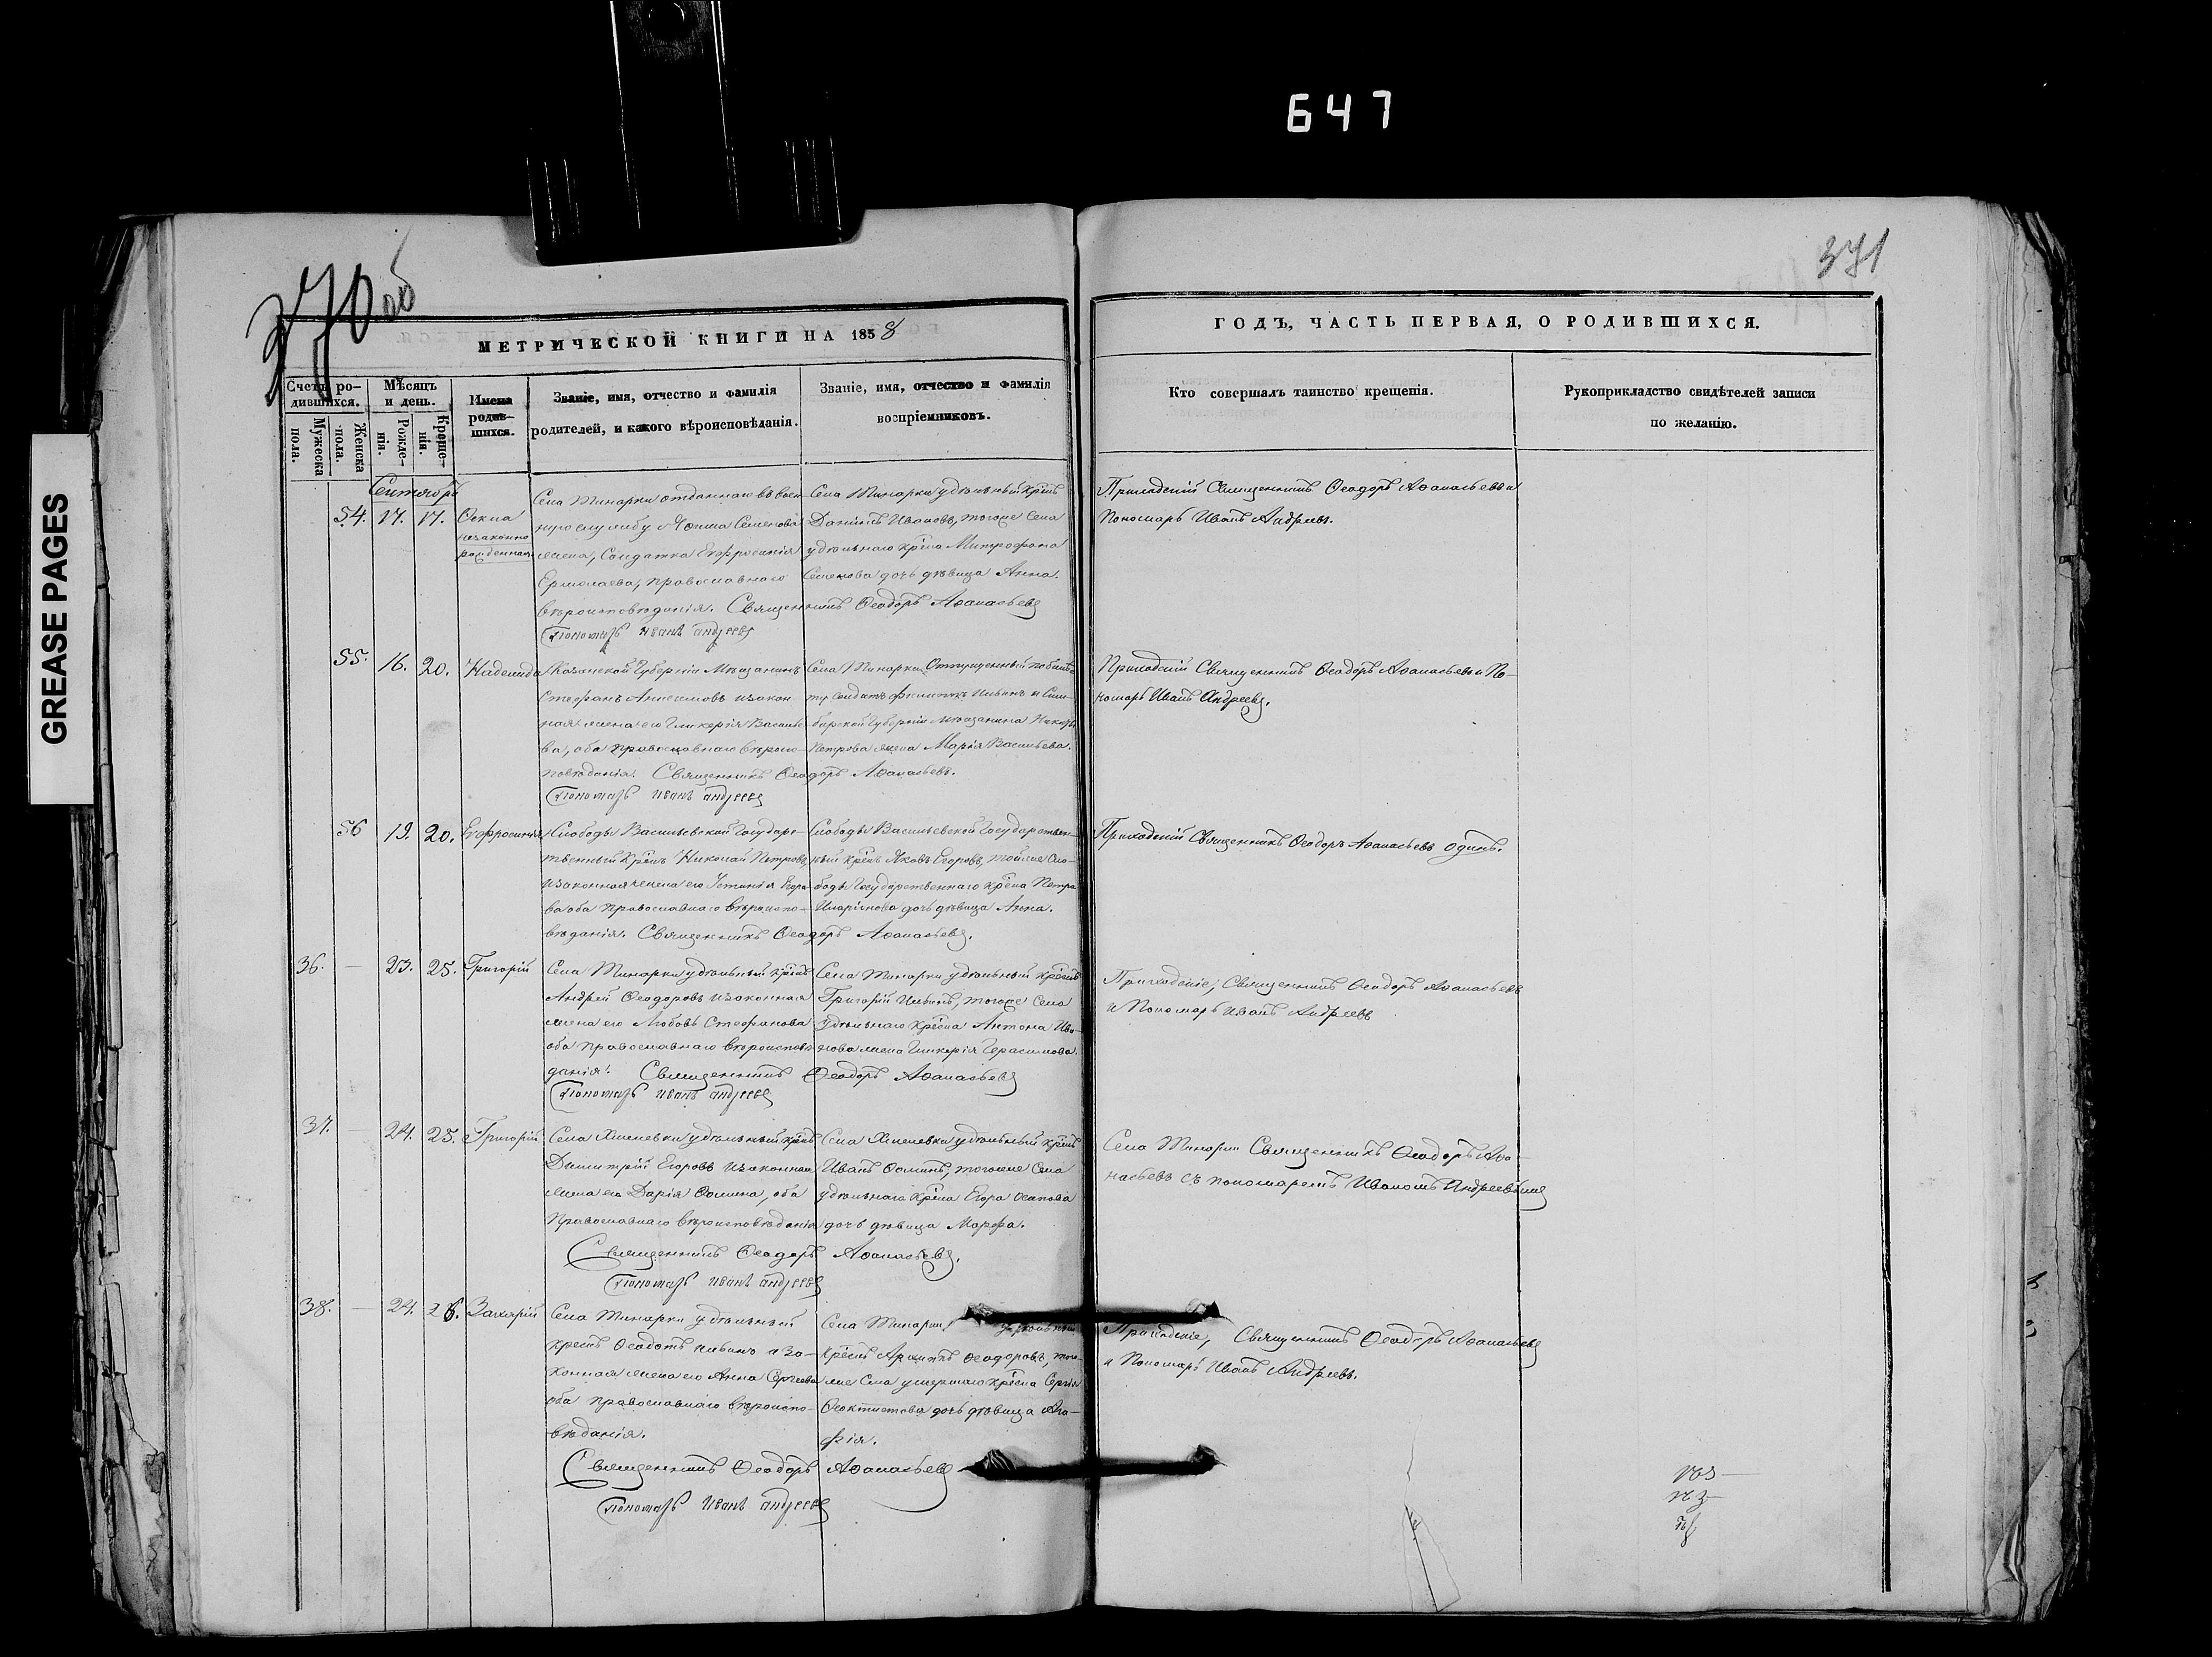 647
GREASE PAGES
370 об
371
МЕТРИЧЕСКОЙ КНИГИ НА 1858
ГОДЪ, ЧАСТЬ ПЕРВАЯ, О РОДИВШИХСЯ.
Счетъ ро-
дившихся.
Мужеска
пола.
Женска
пола.
Мѣсяцъ
и день.
Рожде-
нія.
Креще-
нія.
Имена
родив-
шихся.
Званіе, имя, отчество и фамилія
родителей, и какого вѣроисповѣданія.
Званіе, имя, отчество и фамилія
воспріемниковъ.
Кто совершалъ таинство крещенія.
Рукоприкладство свидѣтелей записи
по желанію.
Сентябрь
54. 17. 17.
незаконно
рожденная
Села отданнаго въ воен
ную службу Семенова
жена, Солдатка Евфросинія
Ермолаева, православнаго
вѣроисповѣданія. Священникъ Ѳеодоръ Аѳанасьевъ
Пономарь Иванъ Андреевъ
Села удѣльный крѣнъ
Даніилъ Ивановъ, тогоже села
удѣльнаго крѣна Митрофана
Семенова дочь дѣвица Анна.
Приходскій Священникъ Ѳеодоръ Аѳанасьевъ и
Пономарь Иванъ Андреевъ.
55. 16. 20. Надежда
Казанской Губерніи Мѣщанинъ
Стефанъ Анисимовъ и закон
ная жена его Гликерія Василье
ва, оба православнаго вѣроис-
повѣданія. Священникъ Ѳеодоръ Аѳанасьевъ.
Пономарь Иванъ Андреевъ
Села Отпущенный по билѣ
ту Солдатъ Филиппъ Ильинъ и Сим-
бирской Губерніи мѣщанина
Петрова жена Марія Васильева.
Приходскій Священникъ Ѳеодоръ Аѳанасьевъ и По-
номарь Иванъ Андреевъ.
56 19. 20. Евфросинія
Слободы Васильевской Государс-
твенный крѣнъ Николай Петровъ
и законная жена его Устинія Егоро
ва оба Православнаго вѣроиспо-
вѣданія. Священникъ Ѳеодоръ Аѳанасьевъ.
Слободы Васильевской Государствен-
ный крѣнъ Яковъ Егоровъ, тойже Сло-
боды Государственнаго крѣна Петра
Иларіонова дочь дѣвица Анна.
Приходскій Священникъ Ѳеодоръ Аѳанасьевъ одинъ.
36. — 23. 25. Григорій
Села удѣльный крѣнъ
Андрей Ѳеодоровъ и законная
жена его Любовь Стефанова
оба православнаго вѣроисповѣ
данія. Священникъ Ѳеодоръ Аѳанасьевъ
Пономарь Иванъ Андреевъ
Села удѣльный крѣнъ
Григорій Ильинъ, тогоже Села
удѣльнаго крѣна Антона Ива-
нова жена Гликерія Герасимова.
Приходскіе, Священникъ Ѳеодоръ Аѳанасьевъ
и Пономарь Иванъ Андреевъ
37. — 24. 25. Григорій
Села Хмелевки удѣльный крѣнъ
Димитрій Егоровъ и законная
жена его Дарія Ѳомина, оба
Православнаго вѣроисповѣданія
Священникъ Ѳеодоръ Аѳанасьевъ.
Пономарь Иванъ Андреевъ
Села Хмелевки удѣльный крѣнъ
Иванъ Ѳоминъ, тогоже Села
удѣльнаго крѣна Егора Осипова
дочь дѣвица Марфа.
Села Священникъ Ѳеодоръ Аѳа-
насьевъ съ пономаремъ Иваномъ Андреевымъ
38. — 24. 26. Захарій
Села удѣльный
крѣнъ Ѳеодотъ и за-
конная жена его Анна Сергеева
оба православнаго вѣроиспо-
вѣданія.
Священникъ Ѳеодоръ Аѳанасьевъ
Пономарь Иванъ Андреевъ
Села удѣльный
крѣнъ Ѳеодоровъ, того-
же Села умершаго крѣна Сергія
Ѳеоктистова дочь дѣвица Ага-
фія.
Приходскіе, Священникъ Ѳеодоръ Аѳанасьевъ
и Пономарь Иванъ Андреевъ.